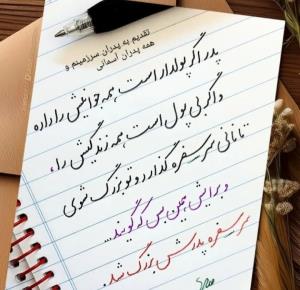 تقدیم به پدران سرزمینم و
همه پدران آسمانی
پدر اگر پولدار است، همه جوانیش را داده
و اگر بی پول است، همه زندگیش را،
تا نانی سر سفره گذارد و تو بزرگ شوی
و برایش همین بس که گویند...
سر سفره پدرش بزرگ شد.